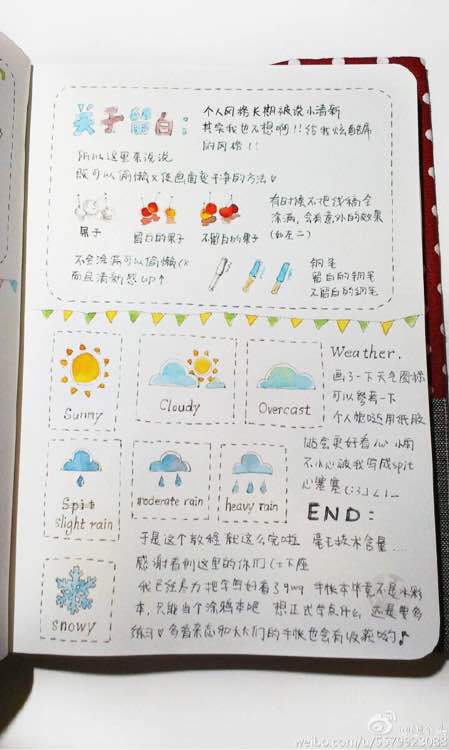 关于留白:
个人风格长期被说小清新
其实我也不想啊!!给我炫酷屌
的风格!!
所以这里来说说
既可以偷懒又使画面变干净的方法
果子
留白的果子
不留白的果子
有时候不把线稿全
涂满,会有意外的效果
(如左二)
不全涂满可以偷懒
而且清新感up↑
钢笔
留白的钢笔
不留白的钢笔
Sunny
Cloudy
Overcast
Weather.
画了一下天气图标
可以参考一下
个人觉得用纸胶
贴会更好看 小雨
不小心被我写成spit
心塞塞
Spit
slight rain
moderate rain
heavy rain
END:
于是这个教程就这么完啦 毫无技术含量...
感谢看到这里的你们
我已经尽力把字写好看了 手帐本毕竟不是水彩
本,只能当个涂鸦本吧 想正式学点什么 还是要多
练习 多看亲亲和太太们的手帐也会有收获哟♪
snowy
weibo.com/u/5579923083